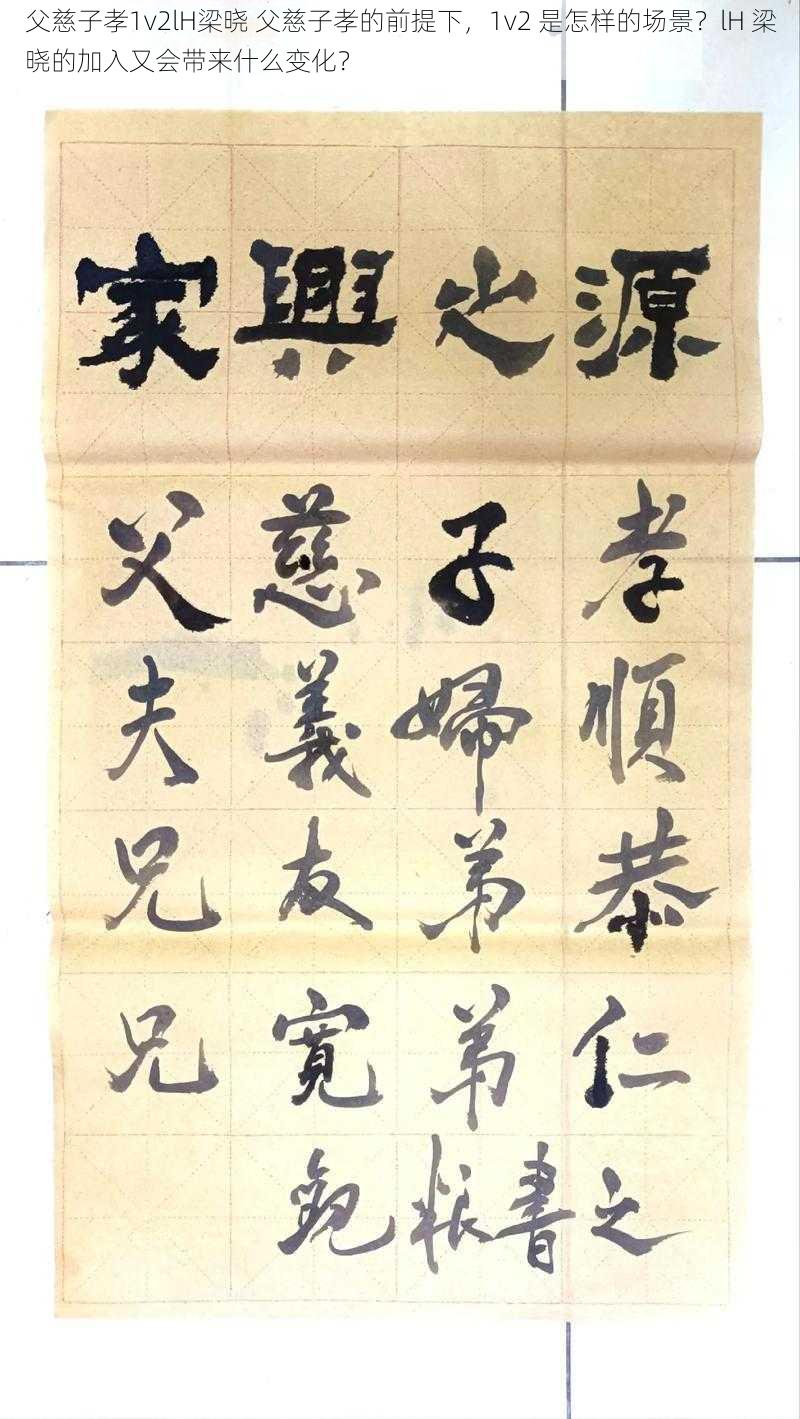 父慈子孝1v2lH梁晓 父慈子孝的前提下，1v2 是怎样的场景？lH 梁
晓的加入又会带来什么变化？
家興之源
父慈子孝
夫義婦順
兄友弟恭
兄寬弟仁
書之